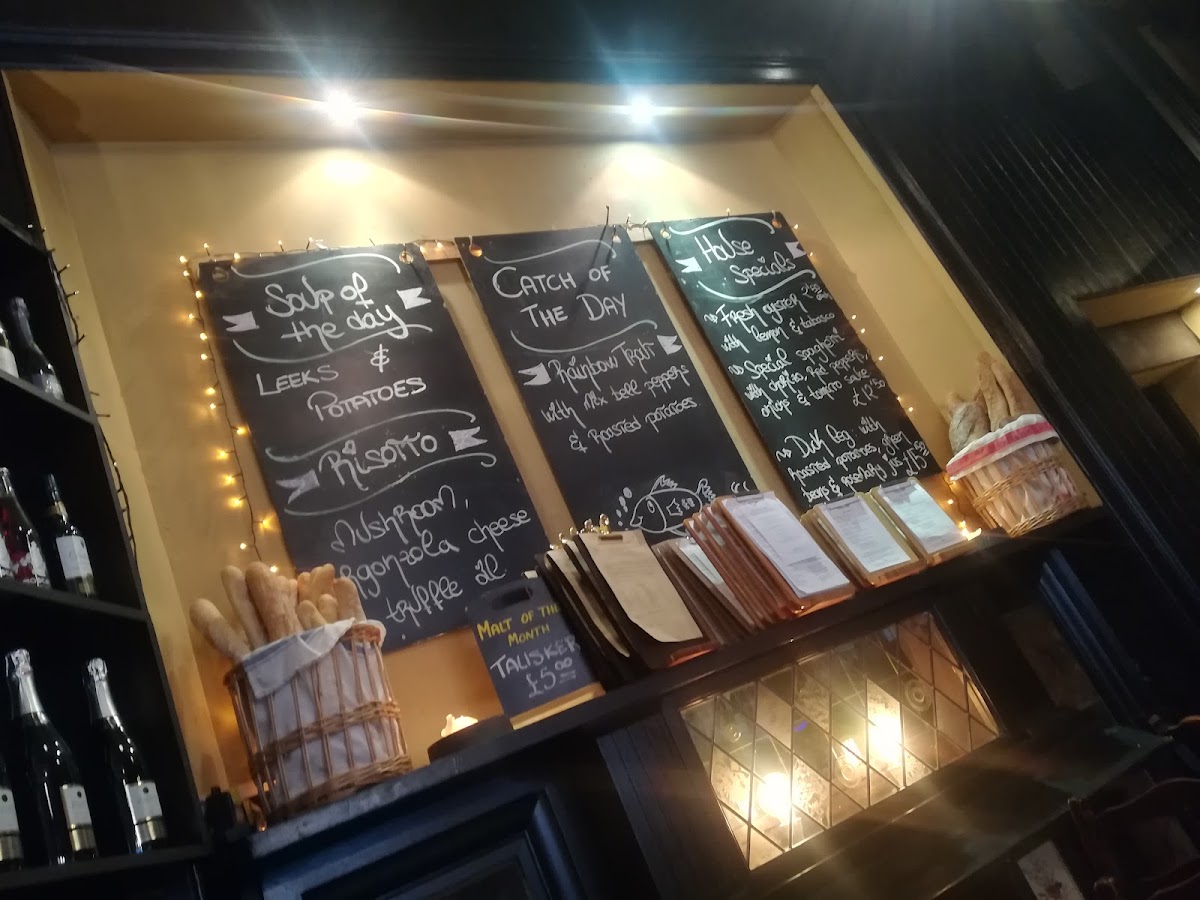 Soup of
the day
LEEKS &
POTATOES
RISOTTO
MUSHROOM,
gonzola cheese
truffle oil
CATCH OF
THE DAY
Rainbow Trout
with Mix bell peppers
& Roasted potatoes
House
Specials
Fresh oyster
with lemon & tabasco
Special spaghetti
with chorizo, Red peppers,
onions & tomato
£12.50
Duck leg with
Roasted potatoes, green
beans & jus
MALT OF THE
MONTH
TALISKER
£5.00